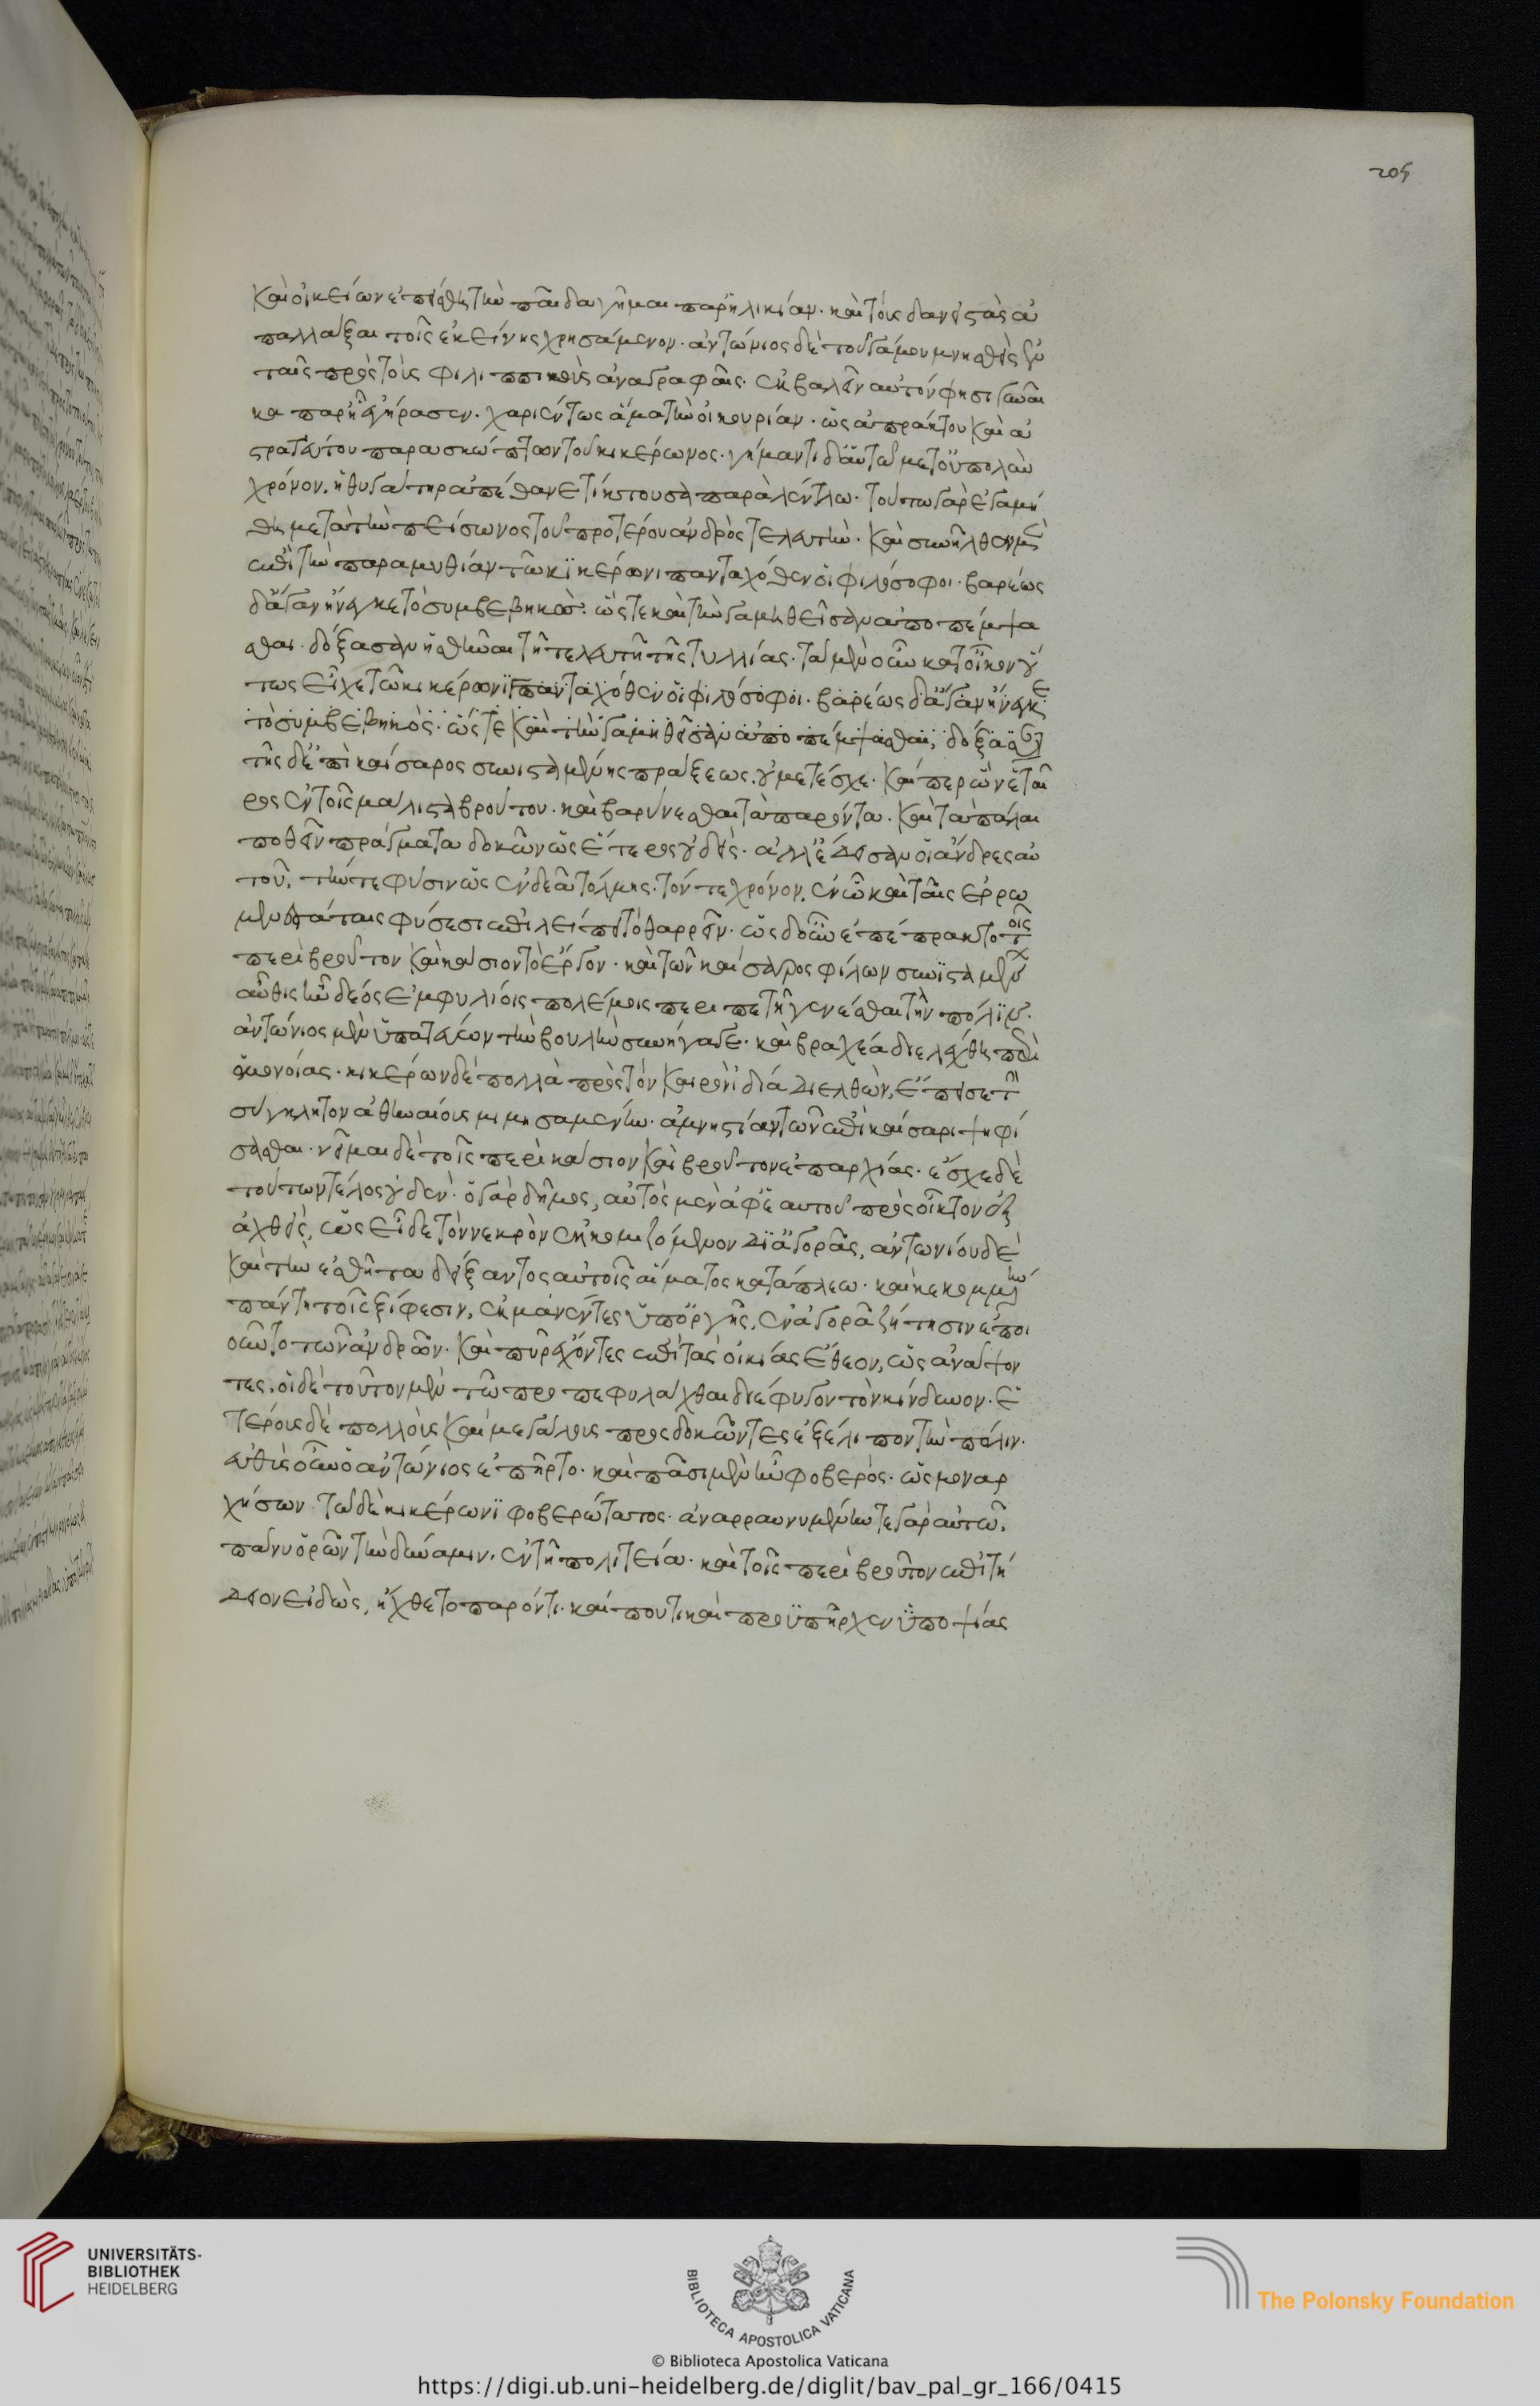 205
καὶ οἰκείων ἐπείσθη τὴν παῖδα γῆμαι παρ' ἡλικίαν· καὶ τοὺς δανειστὰς ἀ
παλλάξαι τοῖς ἐκείνης χρησάμενον· ἀντώνιος δὲ τοῦ γάμου μνησθεὶς ἐν
ταῖς πρὸς τοὺς φιλιππικοὺς ἀναγραφαῖς· ἐκβαλεῖν αὐτόν φησι γυναῖ
κα παρ' ᾗ ἐγήρασεν· χαριέντως ἅμα τὴν οἰκουρίαν· ὡς ἀπράκτου καὶ ἀ
στρατεύτου παρασκώπτων τοῦ κικέρωνος· γήμαντι δ' αὐτῷ μετ' οὐ πολὺν
χρόνον, ἡ θυγάτηρ ἀπέθανε τίκτουσα παρὰ λέντλω· τούτω γὰρ ἐγαμή
θη μετὰ τὴν πείσωνος τοῦ προτέρου ἀνδρὸς τελευτήν· καὶ συνῆλθον μὲν
ἐπὶ τὴν παραμυθίαν τῶ κικέρωνι πανταχόθεν οἱ φιλόσοφοι· βαρέως
δ' ἄγαν ἤνεγκε τὸ συμβεβηκός· ὥστε καὶ τὴν γαμηθεῖσαν ἀποπέμψα
σθαι· δόξασαν ἡσθῆναι τῇ τελευτῇ τῆς τυλλίας· τὰ μὲν οὖν κατ' οἶκον οὕ
τως εἶχε τῶ κικέρωνι πανταχόθεν οἱ φιλόσοφοι· βαρέως δ' ἄγαν ἤνεγκε
τὸ συμβεβηκός· ὥστε καὶ τὴν γαμηθεῖσαν ἀποπέμψασθαι, δόξασαν
τῆς δ' ἐπὶ καίσαρος συνισταμένης πράξεως, οὐ μετέσχε· καίπερ ὢν ἑταῖ
ρος ἐν τοῖς μάλιστα βρούτου· καὶ βαρύνεσθαι τὰ παρόντα· καὶ τὰ πάλαι
ποθεῖν πράγματα δοκῶν ὡς ἕτερος οὐδείς· ἀλλ' ἔδεισαν οἱ ἄνδρες αὐ
τοῦ, τήν τε φύσιν ὡς ἐνδεᾶ τόλμης· τόν τε χρόνον, ἐν ᾧ καὶ ταῖς ἐρρω
μενεστάταις φύσεσι ἐπιλείπει τὸ θαρρεῖν· ὡς δ' οὖν ἐπέπρακτο τοῖς
περὶ βροῦτον καὶ κάσιον τὸ ἔργον· καὶ τῶν καίσαρος φίλων συνισταμένων
αὖθις ἦν δέος ἐμφυλίοις πολέμοις περιπετῆ γενέσθαι τὴν πόλιν·
ἀντώνιος μὲν ὑπατεύων τὴν βουλὴν συνήγαγε· καὶ βραχέα διελέχθη περὶ
ὁμονοίας· κικέρων δὲ πολλὰ πρὸς τὸν καιρὸν διὰ διελθὼν, ἔπεισε τὴν
σύγκλητον ἀθηναίους μιμησαμένην· ἀμνηστίαν τῶν ἐπὶ καίσαρι ψηφί
σασθαι· νεῖμαι δὲ τοῖς περὶ κάσιον καὶ βροῦτον ἐπαρχίας· ἔσχε δὲ
τούτων τέλος οὐδέν· ὁ γὰρ δῆμος, αὐτὸς μὲν ἀφ' ἑαυτοῦ πρὸς οἶκτον ἐξ
αχθεὶς, ὡς εἶδε τὸν νεκρὸν ἐκκομιζόμενον δι' ἀγορᾶς, ἀντωνίου δὲ
καὶ τὴν ἐσθῆτα δείξαντος αὐτοῖς αἵματος κατάπλεω· καὶ κεκομμένην
πάντη τοῖς ξίφεσιν, ἐκμανέντες ὑπ' ὀργῆς, ἐν ἀγορᾶ ζήτησιν ἐποι
οῦντο τῶν ἀνδρῶν· καὶ πῦρ ἔχοντες ἐπὶ τὰς οἰκίας ἔθεον, ὡς ἀνάψον
τες. οἱ δὲ τοῦτον μὲν τῶ προπεφυλάχθαι διέφυγον τὸν κίνδυνον· ἑ
τέρους δὲ πολλοὺς καὶ μεγάλους προςδοκῶντες ἐξέλιπον τὴν πόλιν·
εὐθὺς οὖν ὁ ἀντώνιος ἐπῆρτο· καὶ πᾶσι μὲν ἦν φοβερὸς· ὡς μοναρ
χήσων· τῶ δὲ κικέρωνι φοβερώτατος· ἀναρρωννυμένην τε γὰρ αὐτῶ,
πάνυ ὁρῶν τὴν δύναμιν, ἐν τῇ πολιτεία· καὶ τοῖς περὶ βροῦτον ἐπιτή
δειον εἰδὼς, ἤχθετο παρόντι· καί που τι καὶ προϋπῆρχεν ὑποψίας
UNIVERSITÄTS-
BIBLIOTHEK
HEIDELBERG
BIBLIOTECA APOSTOLICA VATICANA
The Polonsky Foundation
© Biblioteca Apostolica Vaticana
https://digi.ub.uni-heidelberg.de/diglit/bav_pal_gr_166/0415